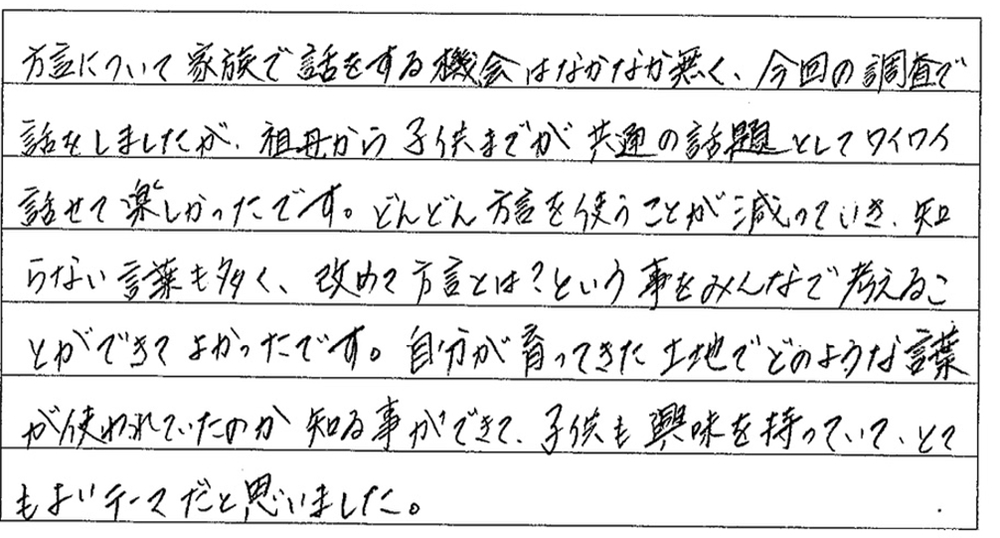 方言について家族で話をする機会はなかなか無く、今回の調査で
話をしましたが、祖母から子供までが共通の話題としてワイワイ
話せて楽しかったです。どんどん方言を使うことが減っていき、知
らない言葉も多く、改めて方言とは?という事をみんなで考えるこ
とができてよかったです。自分が育ってきた土地でどのような言葉
が使われていたのか知る事ができて、子供も興味を持っていて、とて
もよいテーマだと思いました。